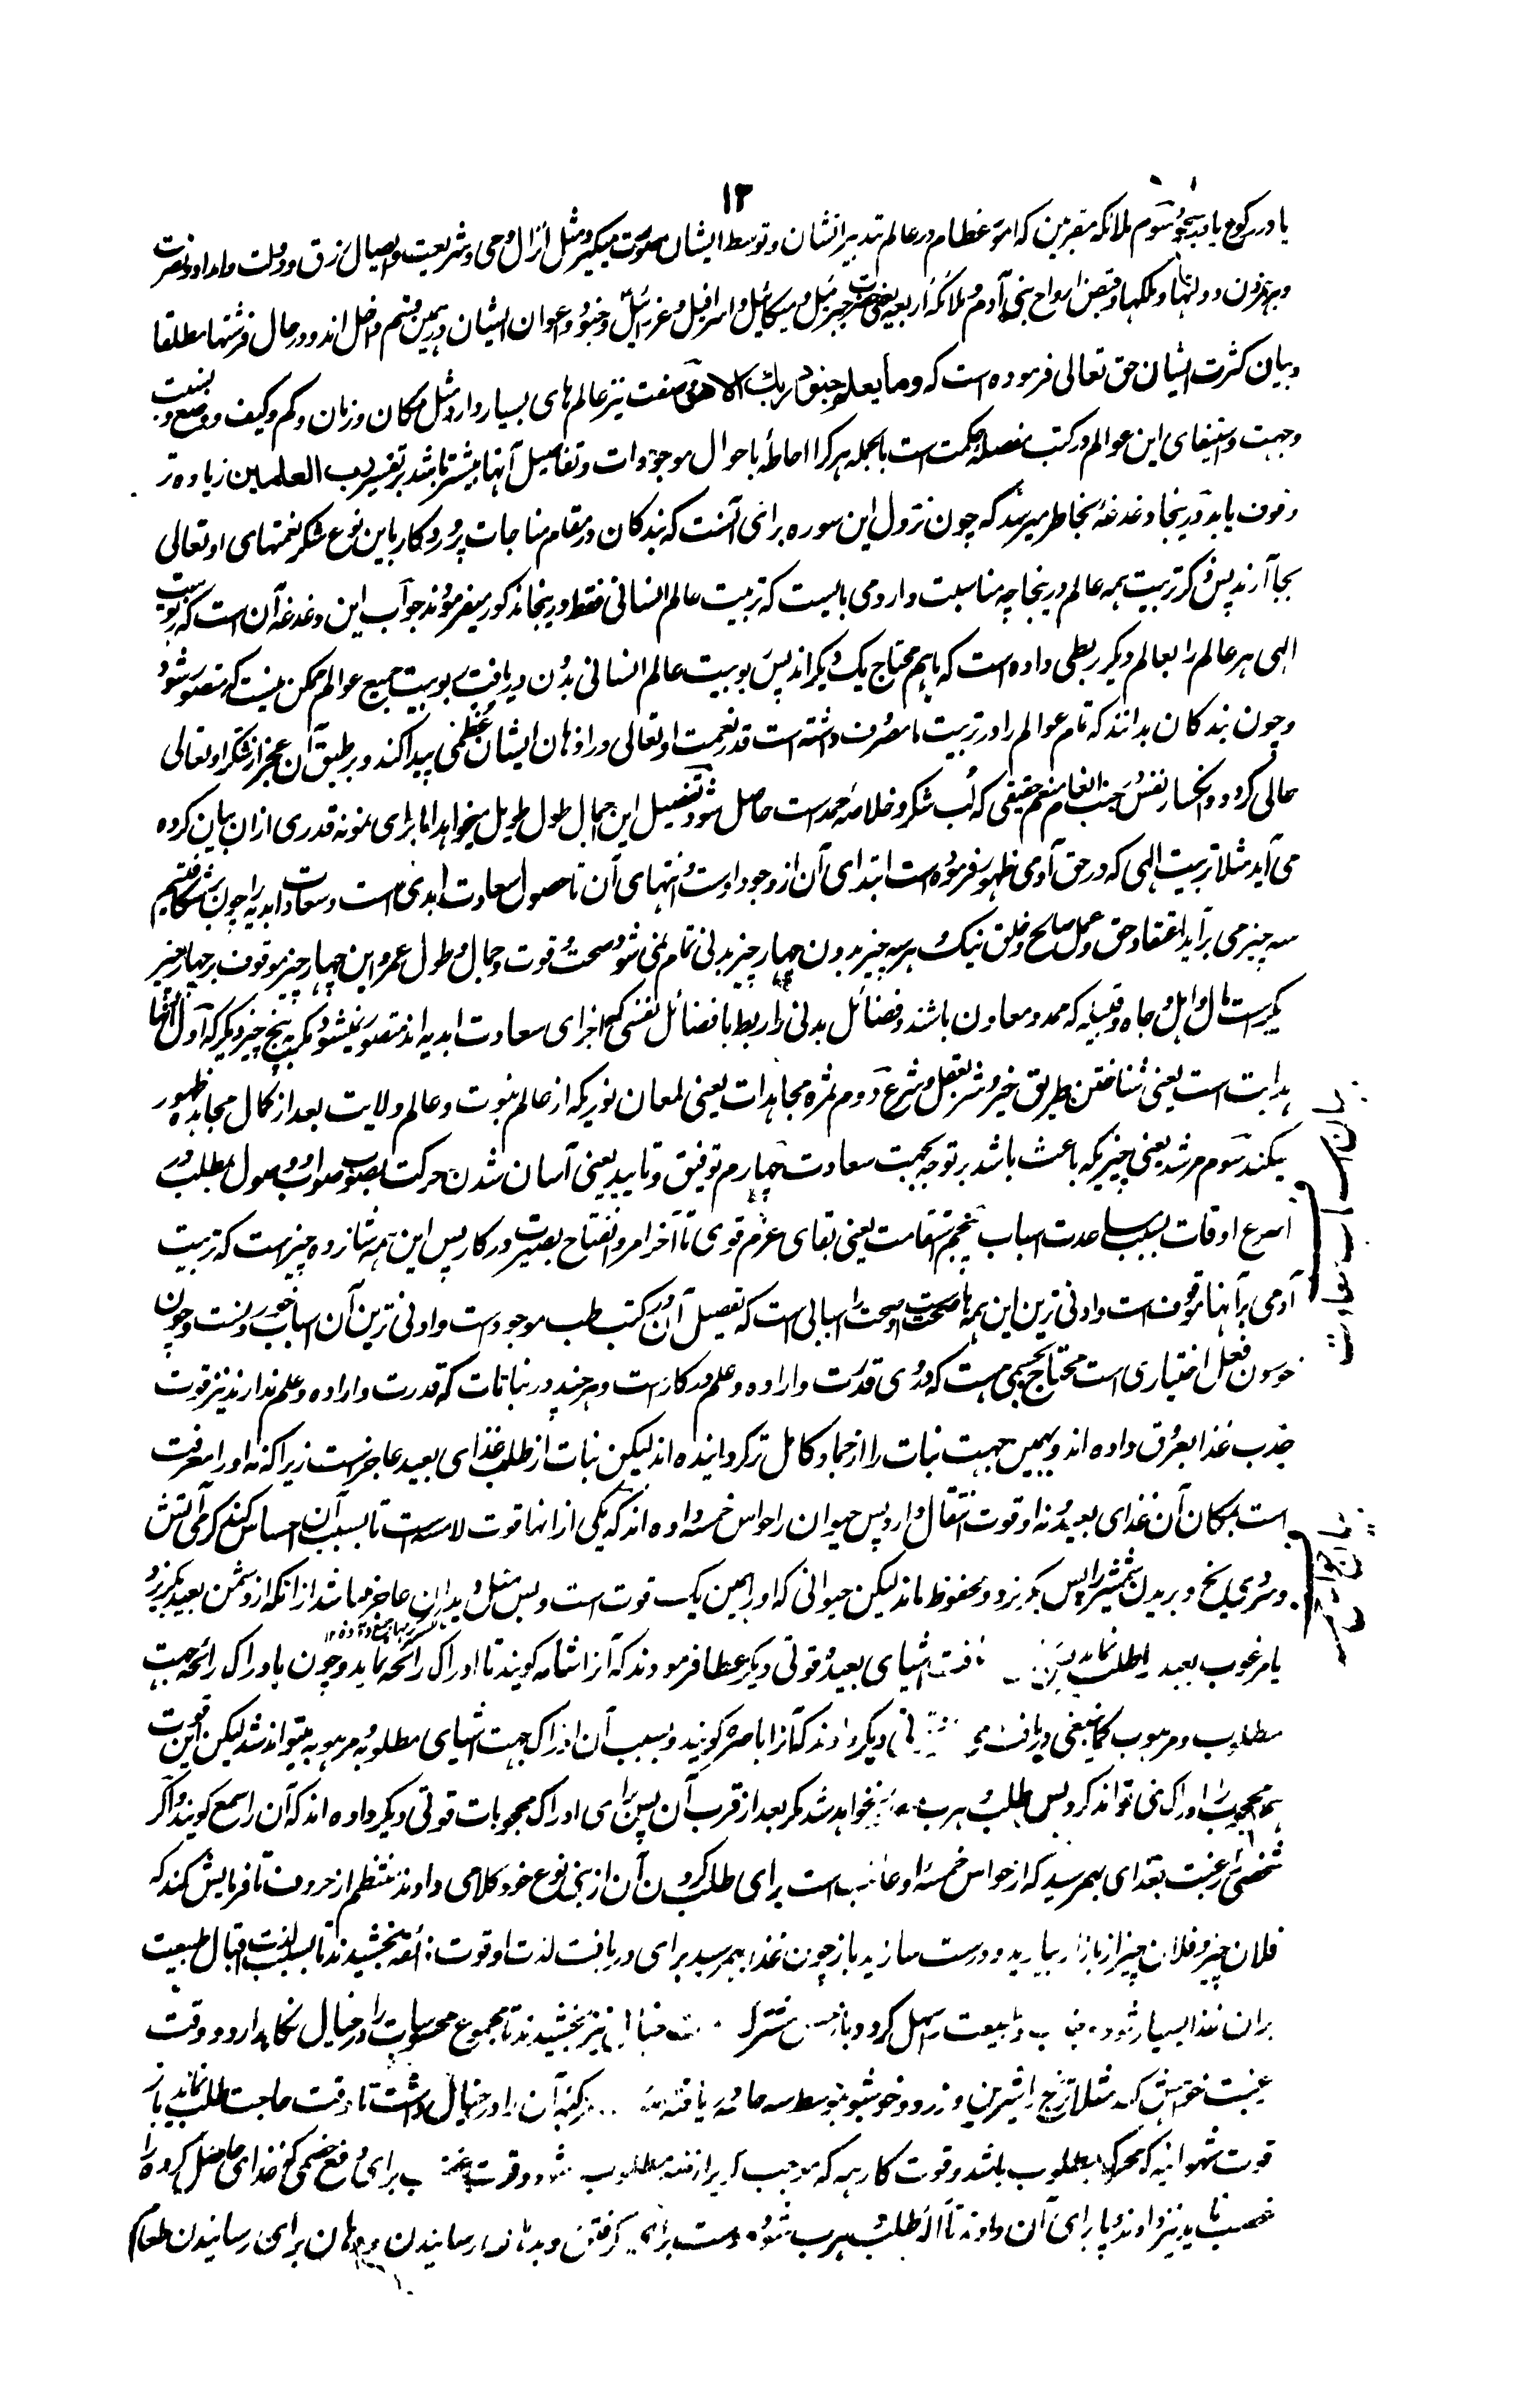 ۱۲
یا در رکوع یا در سجود سوم ملائکه مقربین که امور عظام در عالم تدبیر ایشان و توسط ایشان صورت میگیرد مثل انزال وحی و شریعت و ایصال رزق و دولت و امداد و نصرت
و برهمزدن دولتها و ملکها و قبض ارواح بنی آدم و ملائکه اربعه یعنی حضرت جبرئیل و میکائیل و اسرافیل و عزرائیل و جنود و اعوان ایشان در همین قسم داخل اند و در حال فرشتها مطلقا
و بیان کثرت ایشان حق تعالی فرموده است که وما یعلم جنود ربک الا هو صفت نیز عالم های بسیار دارد مثل مکان و زمان و کم و کیف و وضع و نسبت
و جهت و استیفای این عوالم در کتب مفصله حکمت است بالجمله هر کرا احاطه باحوال موجودات و تفاصیل آنها بیشتر باشد بر تفسیر رب العلمین زیاده تر
وقوف یابد درینجا دغدغهٔ بخاطر میرسد که چون نزول این سوره برای آنست که بندکان در مقام مناجات پروردکار باین نوع شکر نعمتهای او تعالی
بجا آرند پس ذکر تربیت همه عالم درینجا چه مناسبت دارد می بایست که تربیت عالم انسانی فقط درینجا مذکور میفرمودند جواب این دغدغه آن است که ربوبیت
الهی هر عالم را بعالم دیکر ربطی داده است که باهم محتاج یک دیکر اند پس ربوبیت عالم انسانی بدون دریافت ربوبیت جمیع عوالم ممکن نیست که متصور شود
و چون بندکان بدانند که تمام عوالم را در تربیت ما مصرف داشته است قدر نعمت او تعالی در اذهان ایشان عظمی پیدا کند و بر طبق آن عجز از شکر او تعالی
حالی کردد و انکسار نفس جنب انعام منعم حقیقی که لب شکر و خلاصه حمد ست حاصل شود و تفصیل این اجمال طول طویل میخواهد اما برای نمونه قدری ازان بیان کرده
می آید مثلا تربیت الهی که در حق آدمی ظهور فرموده است ابتدای آن از وجود اوست و انتهای آن تا حصول سعادت ابدی است و سعادت ابدیه را چون بشکافتیم
سه چیز می برآید اعتقاد حق و عمل صالح و خلق نیک و هر سه چیز بدون چهار چیز بدنی تمام نمی شود صحت و قوت و جمال و طول عمر و این چهار چیز موقوف بر چهار چیز
دیکرست مال و اهل و جاه و قبیله که ممد و معاون باشند و فضائل بدنی را ربط با فضائل نفسی که اجزای سعادت ابدیه اند متصور نمیشود مکر به پنج چیز دیکر که اول آنها
هدایت است یعنی شناختن طریق خیر و شر بعقل و شرع دوم ثمره مجاهدات یعنی لمعان نوریکه از عالم نبوت و عالم ولایت بعد از کمال مجاهده ظهور
میکند سوم مرشد یعنی چیزیکه باعث باشد بر توجه بجهت سعادت چهارم توفیق و تایید یعنی آسان شدن حرکت بصوب صواب و وصول بمطلب در
اسرع اوقات بسبب مساعدت اسباب پنجم استقامت یعنی بقای عزم قوی تا آخر امر و انفتاح بصیرت در کار پس این همه شانزده چیز است که تربیت
آدمی بر آنها موقوف است و ادنی ترین این همه ها صحت است و صحت را اسبابی است که تفصیل آن در کتب طب موجودست و ادنی ترین آن اسباب خوردنست و چون
خوردن فعل اختیاری است محتاج بجسمی است که دروی قدرت و اراده و علم در کارست و هر چند در نباتات که قدرت و اراده و علم ندارند نیز قوت
جذب غذا بعروق داده اند و بهمین جهت نبات را از جماد کامل تر کردانیده اند لیکن نبات از طلب غذای بعید عاجزست زیرا که نه او را معرفت
است بمکان آن غذای بعید و نه او قوت انتقال دارد پس حیوان را حواس خمسه داده اند که یکی ازانها قوت لامسه است تا بسبب آن احساس کند کرمی آتش
و سردی یخ و بریدن شمشیر را پس بکریزد و محفوظ ماند لیکن حیوانی که او را همین یک قوت است و بس مثل دیدان عاجز میباشد ازانکه از دشمن بعید بکریزد
یا مرغوب بعید را طلب نماید پس دریافت اشیای بعیده قوتی دیکر عطا فرمودند که آنرا شامه کویند تا ادراک رائحه نماید و چون بادراک رائحه جهت
مطلوب و مرهوب کما ینبغی دریافت دیکر دادند که آنرا باصره کویند و بسبب آن ادراک جهت اشیای مطلوبه و مرهوبه میتواند شد لیکن این قوت
هم محجوب را ادراک نمی تواند کرد پس طلب و هرب نخواهد شد مکر بعد از قرب آن پس برای ادراک محجوبات قوتی دیکر داده اند که آن را سمع کویند و اکر
شخصی را رغبت بغذای بهمرسید که از حواس خمسهٔ او غائب است برای طلب کردن آن از بنی نوع خود کلامی دادند منتظم از حروف تا فرمایش کند که
فلان چیز و فلان چیز از بازار بیارید و درست سازید باز چون غذا بهمرسید برای دریافت لذت او قوت ذائقه بخشیدند تا بسبب لذت اقبال طبیعت
بران غذا بسیار شود و جذب طبیعت سهل کردد و باز حس مشترک خیال نیز بخشیدند تا مجموع محسوسات را در خیال نکاهدارد و وقت
غیبت خواهش کند مثلا ترنج را شیرین و زرد و خوشبو بتوسط سه حاسه یافته آن را در خیال داشت تا وقت حاجت طلب نماید باز
قوت شهوانیه که محرک مطلوب باشد و قوت کارهه که موجب کریز از مطلوب شود و قوت برای دفع خصمی که غذای حاصل کرده را
غصب نماید نیز دادند و پا برای آن دادند تا آلهٔ طلب و هرب شود و دست برای کرفتن و بدهان رسانیدن و دهان برای رسانیدن طعام
بیان اسباب سعادت